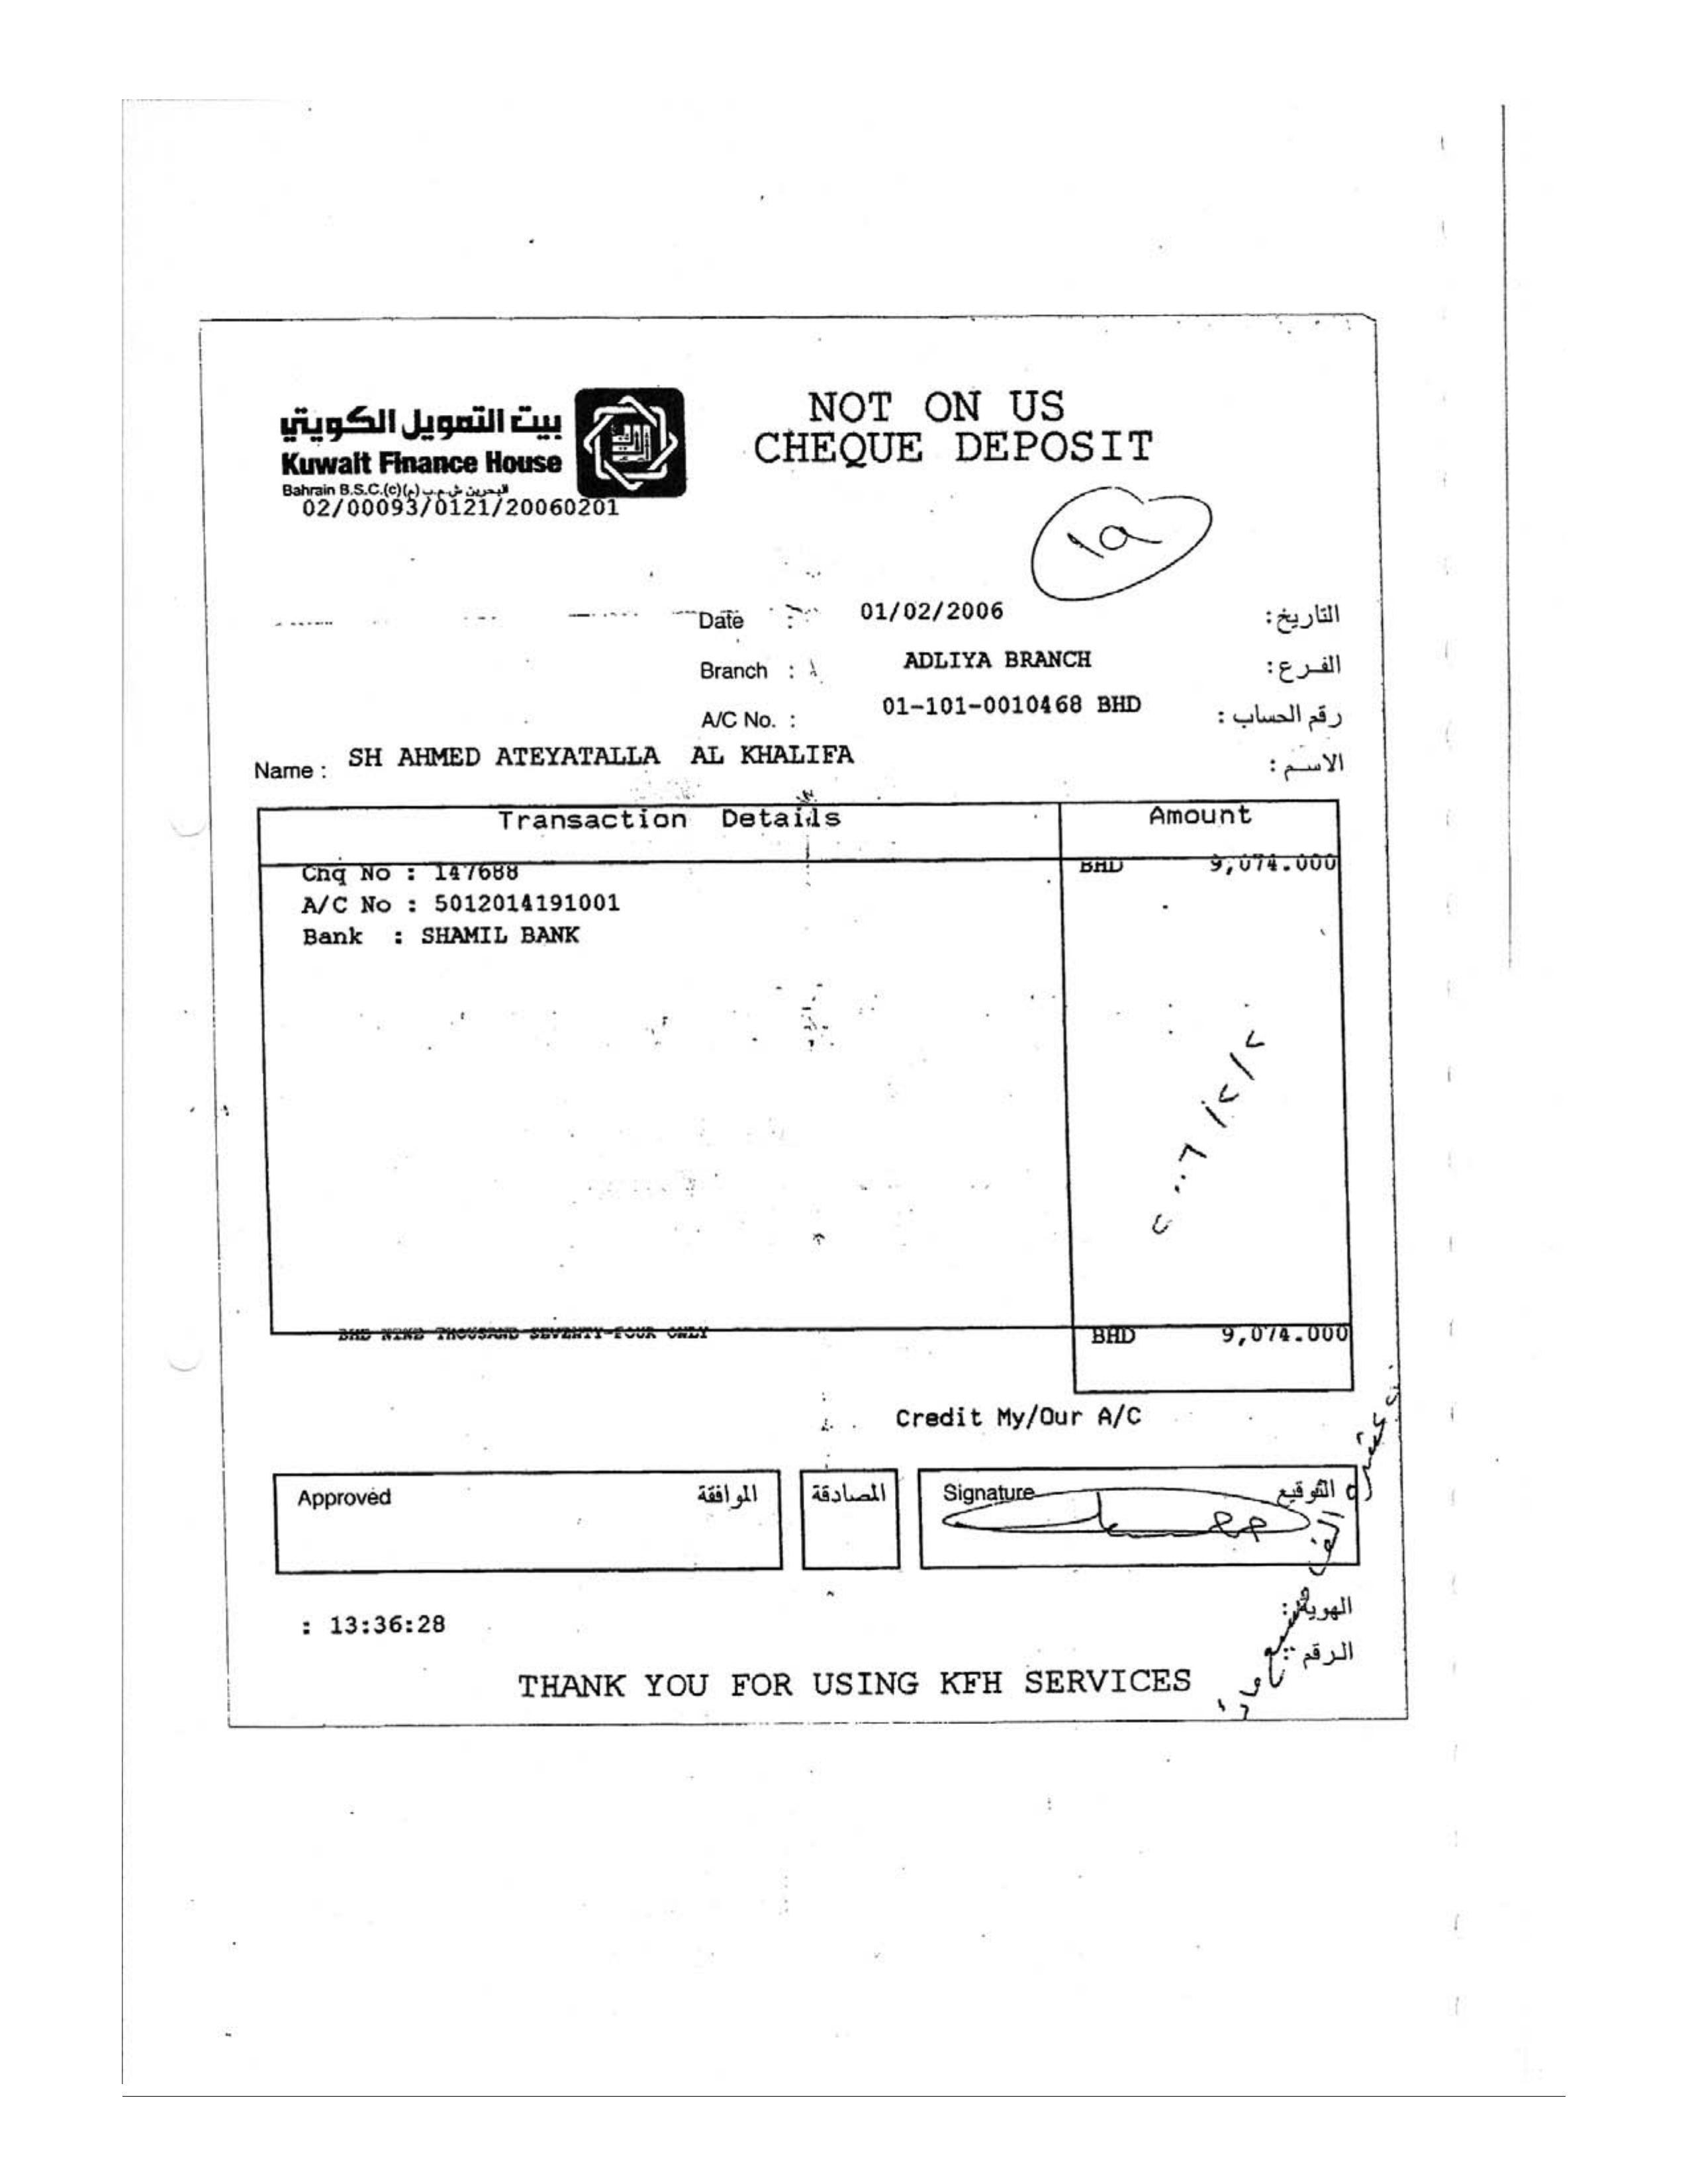 بيت التمويل الكويتي
Kuwait Finance House
Bahrain B.S.C.(c) البحرين ش.م.ب (م)
02/00093/0121/20060201
NOT ON US
CHEQUE DEPOSIT
Date : 01/02/2006 التاريخ:
Branch : ADLIYA BRANCH الفرع:
A/C No. : 01-101-0010468 BHD رقم الحساب :
Name : SH AHMED ATEYATALLA AL KHALIFA الاسم :
Transaction Details Amount
Chq No : 147688 BHD 9,074.000
A/C No : 5012014191001
Bank : SHAMIL BANK
BHD NINE THOUSAND SEVENTY-FOUR ONLY BHD 9,074.000
Credit My/Our A/C
Approved الموافقة المصادقة Signature التوقيع
: 13:36:28 الهوية:
الرقم :
THANK YOU FOR USING KFH SERVICES